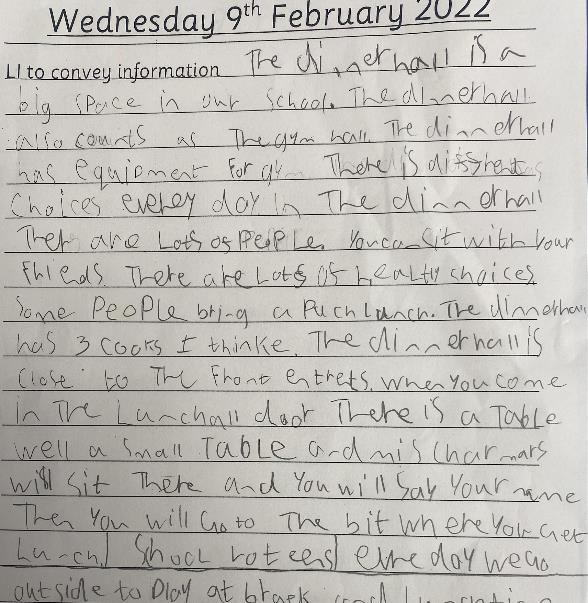 Wednesday 9th February 2022
LI to convey information The dinnerhall is a
big space in our school. The dinnerhall
also counts as The gym hall. The dinnerhall
has equipment for gym There is
Choices everey day in The dinnerhall
Ther are Lots of PePle. You can sit with your
frieds. There are Lots of healty choices
Some PeoPLe bring a Puch Lunch. The dinnerhall
has 3 cooks I thinke. The dinnerhall is
Close to The front entrets. when you come
in The Lunchall door There is a Table
well a small TABLE and mis Charmars
will sit There and You will Say Your name
Then You will Go to The bit where You Get
Lunch School roteens evre day we Go
outside to Play at break